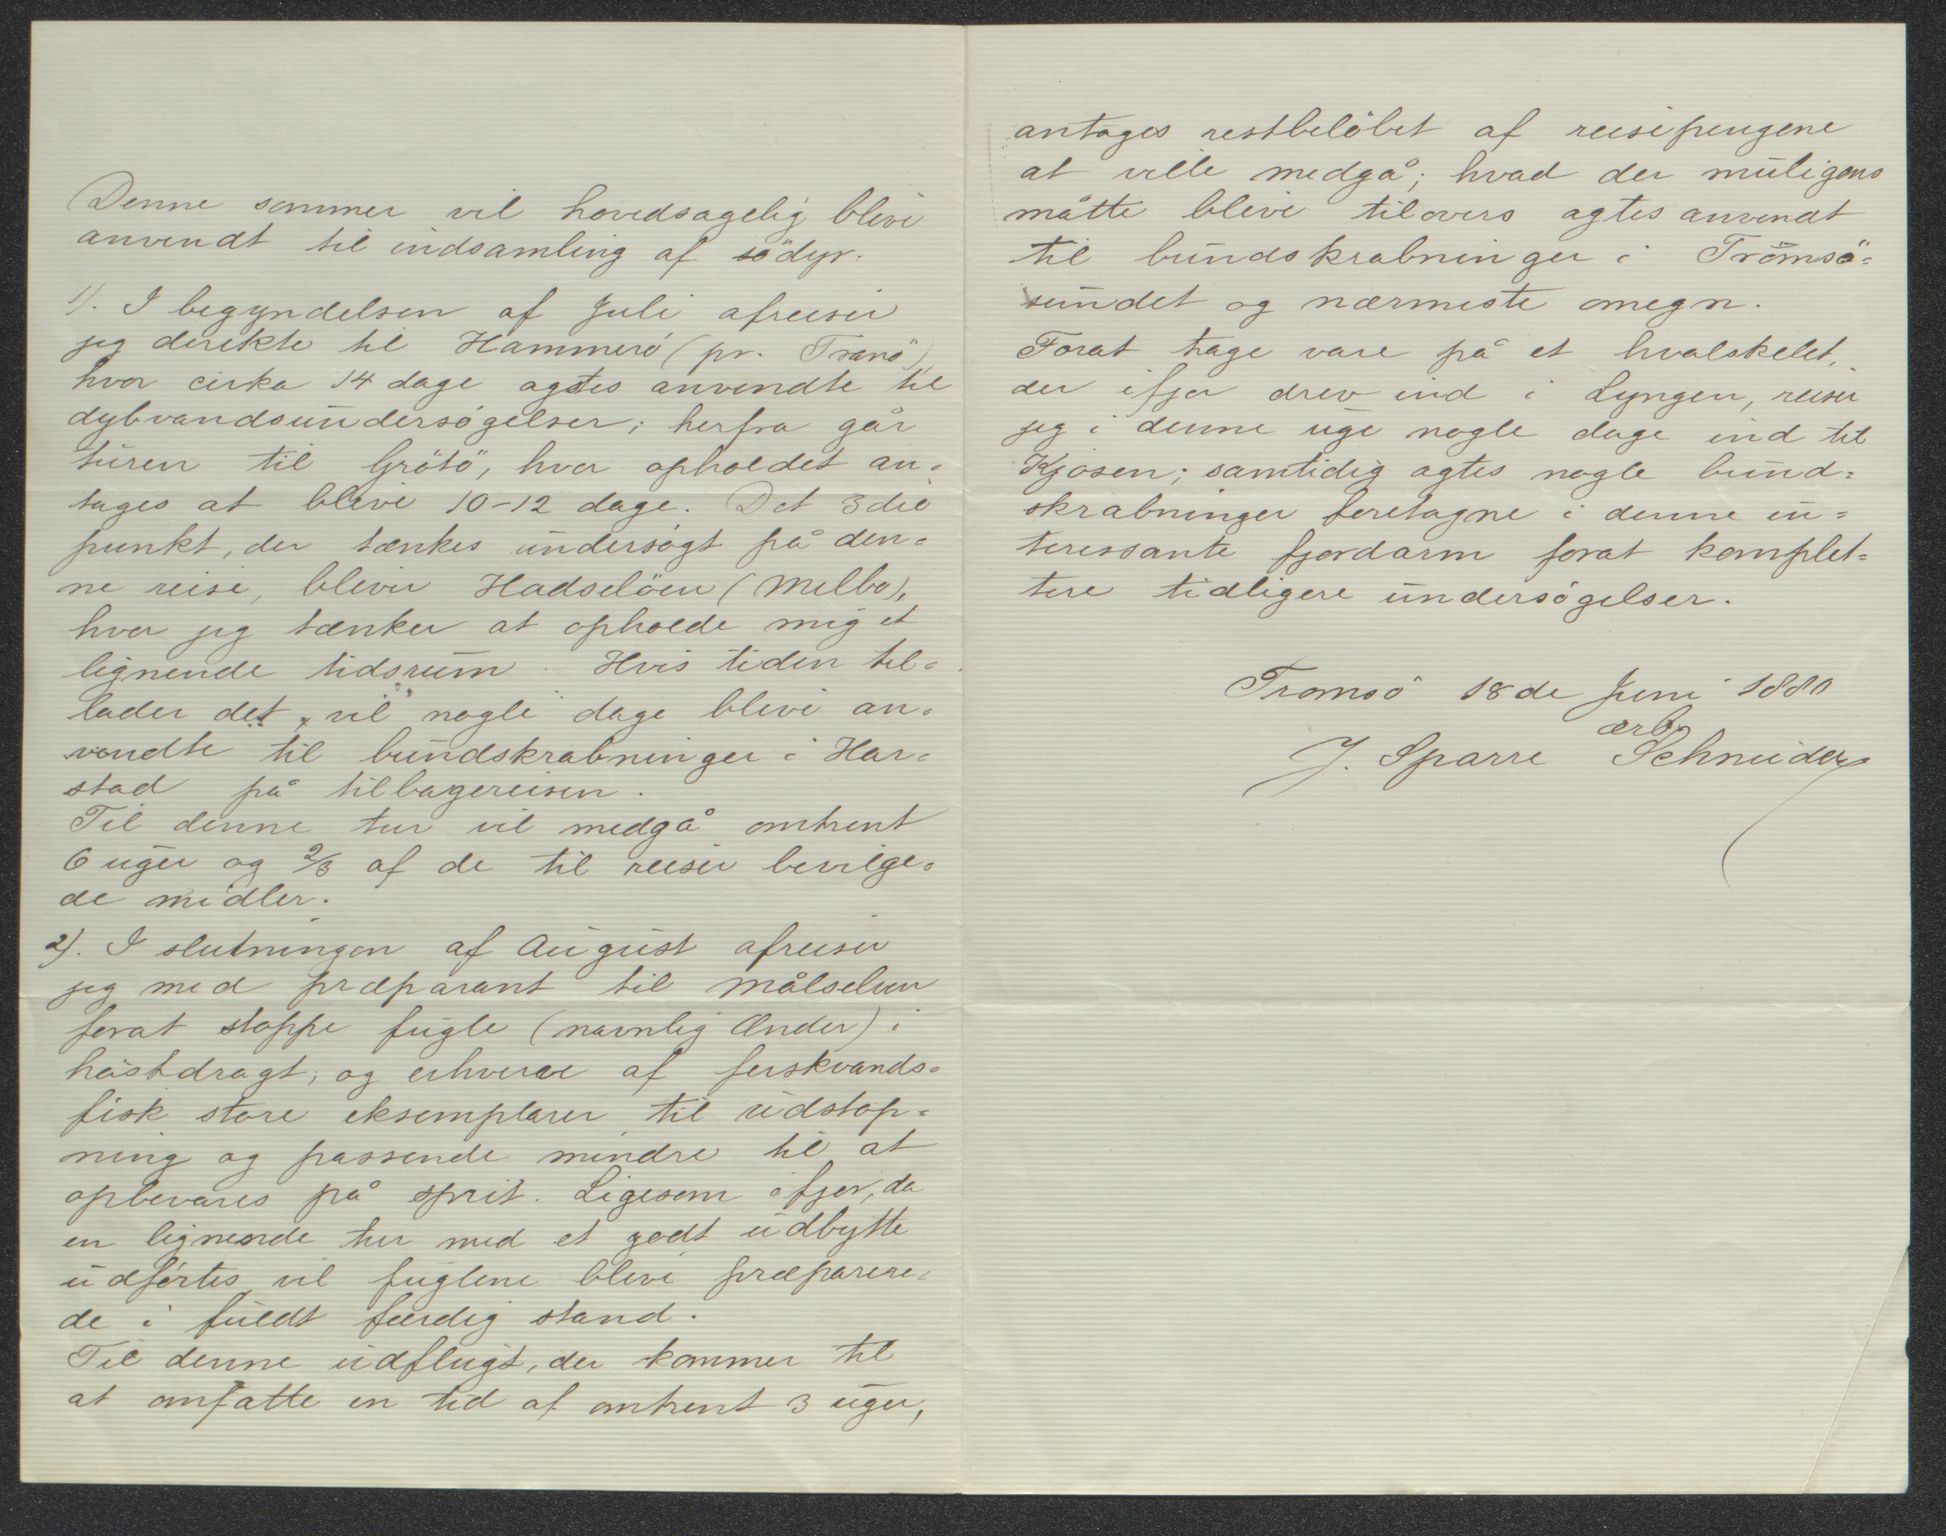 Denne sommer vil hovedsagelig blive
anvendt til indsamling af södyr.
1). I begyndelsen af Juli afreiser
jeg direkte til Hammerö (pr. Tranö)
hvor cirka 14 dage agtes anvendte til
dybvandsundersøgelser; herfra går
turen til Grötö, hvor opholdet an=
tages at blive 10-12 dage. Det 3die
punkt, der tænkes undersøgt på den=
ne reise, bliver Hadselöen (Melbo),
hvor jeg tænker at opholde mig et
lignende tidsrum. Hvis tiden til=
lader det, vil nogle dage blive an=
vendte til bundskrabninger i Har=
stad på tilbagereisen.
Til denne tur vil medgå omtrent
6 uger og 2/3 af de til reiser bevilge=
de midler.
2). I slutningen af August afreiser
jeg med præparant til Målselven
forat stoppe fugle (navnlig Ænder) i
höstdragt, og erhverve af ferskvands=
fisk store eksemplarer til udstop=
ning og passende mindre til at
opbevares på sprit. Ligesom ifjor, da
en lignende tur med et godt udbytte
udførtes, vil fuglene blive præparere=
de i fuldt færdig stand.
Til denne udflugt, der kommer til
at omfatte en tid af omtrent 3 uger,
antages restbelöbet af reisepengene
at ville medgå; hvad der muligens
måtte blive tilovers agtes anvendt
til bundskrabninger i Tromsö=
sundet og nærmeste omegn.
Forat tage vare på et hvalskelet,
der ifjor drev ind i Lyngen, reiser
jeg i denne uge nogle dage ind til
Kjosen; samtidig agtes nogle bund=
skrabninger foretagne i denne in=
teressante fjordarm forat komplet=
tere tidligere undersøgelser.
Tromsö 18de Juni 1880
ærb.
J. Sparre Schneider